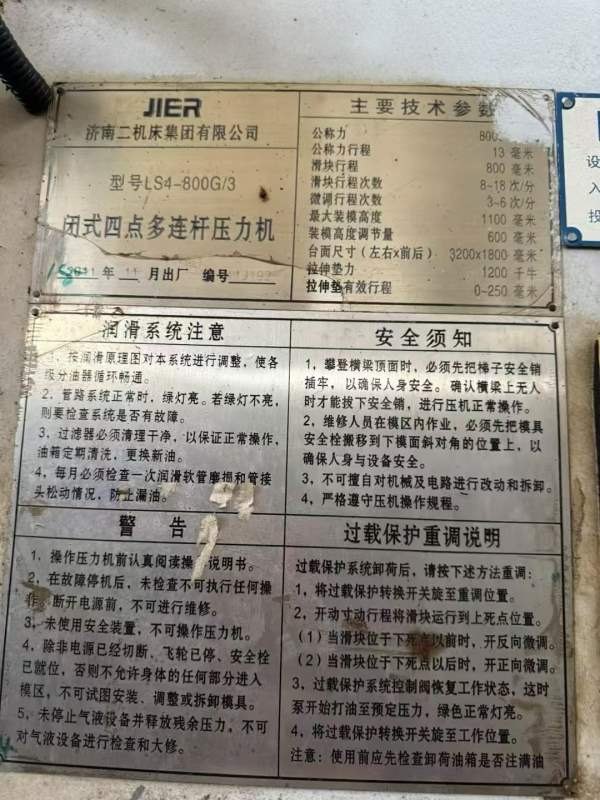 JIER
济南二机床集团有限公司
型号LS4-800G/3
闭式四点多连杆压力机
2011年11月出厂 编号
主要技术参数
公称力 800
公称力行程 13 毫米
滑块行程 800 毫米
滑块行程次数 8-18 次/分
微调行程次数 3-6 次/分
最大装模高度 1100 毫米
装模高度调节量 600 毫米
台面尺寸(左右x前后) 3200x1800 毫米
拉伸垫力 1200 千牛
拉伸垫有效行程 0-250 毫米
润滑系统注意
1、按润滑原理图对本系统进行调整,使各
级分油器循环畅通。
2、管路系统正常时,绿灯亮。若绿灯不亮,
则要检查系统是否有故障。
3、过滤器必须清理干净,以保证正常操作,
油箱定期清洗,更换新油。
4、每月必须检查一次润滑软管磨损和管接
头松动情况,防止漏油。
安全须知
1、攀登横梁顶面时,必须先把梯子安全销
插牢,以确保人身安全。确认横梁上无人
时才能拔下安全销,进行压机正常操作。
2、维修人员在模区内作业,必须先把模具
安全栓搬移到下模面斜对角的位置上,以
确保人身与设备安全。
3、不可擅自对机械及电路进行改动和拆卸。
4、严格遵守压机操作规程。
警告
1、操作压力机前认真阅读操 说明书。
2、在故障停机后,未检查不可执行任何操
作。断开电源前,不可进行维修。
3、未使用安全装置,不可操作压力机。
4、除非电源已经切断、飞轮已停、安全栓
已就位,否则不允许身体的任何部分进入
模区,不可试图安装、调整或拆卸模具。
5、未停止气液设备并释放残余压力,不可
对气液设备进行检查和大修。
过载保护重调说明
过载保护系统卸荷后,请按下述方法重调:
1、将过载保护转换开关旋至重调位置。
2、开动寸动行程将滑块运行到上死点位置。
(1)当滑块位于下死点以前时,开反向微调。
(2)当滑块位于下死点以后时,开正向微调。
3、过载保护系统控制阀恢复工作状态,这时
泵开始打油至预定压力,绿色正常灯亮。
4、将过载保护转换开关旋至工作位置。
注意:使用前应先检查卸荷油箱是否注满油
设
入
投